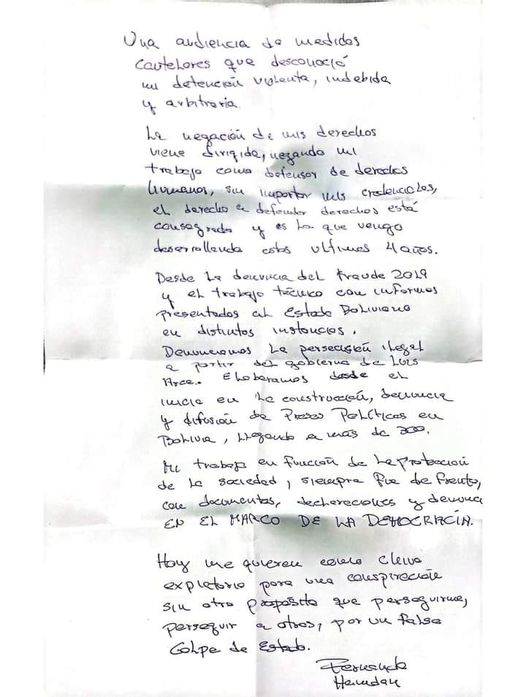 Una audiencia de medidas
cautelares que desconoció
mi detención violenta, indebida
y arbitraria.
La negación de mis derechos
viene dirigida, negando mi
trabajo como defensor de derechos
humanos, sin importar mis credenciales,
el derecho a defender derechos está
consagrado y es lo que vengo
desarrollando estos ultimos 4 años.
Desde la denuncia del fraude 2019
y el trabajo técnico con informes
presentados al Estado Boliviano
en distintas instancias.
Denunciamos la persecusión ilegal
a partir del gobierno de Luis
Arce. Elaboramos desde el
inicio en la construcción, denuncia
y difusión de Presos Políticos en
Bolivia, llegando a más de 300.
Mi trabajo en función de la protección
de la sociedad, siempre fue de frente,
con documentos, declaraciones y denuncia
EN EL MARCO DE LA DEMOCRACÍA.
Hoy me quieren como chivo
expiatorio para una conspiración
sin otro propósito que perseguirme,
perseguir a otros, por un falso
Golpe de Estado.
Fernando
Hamdan